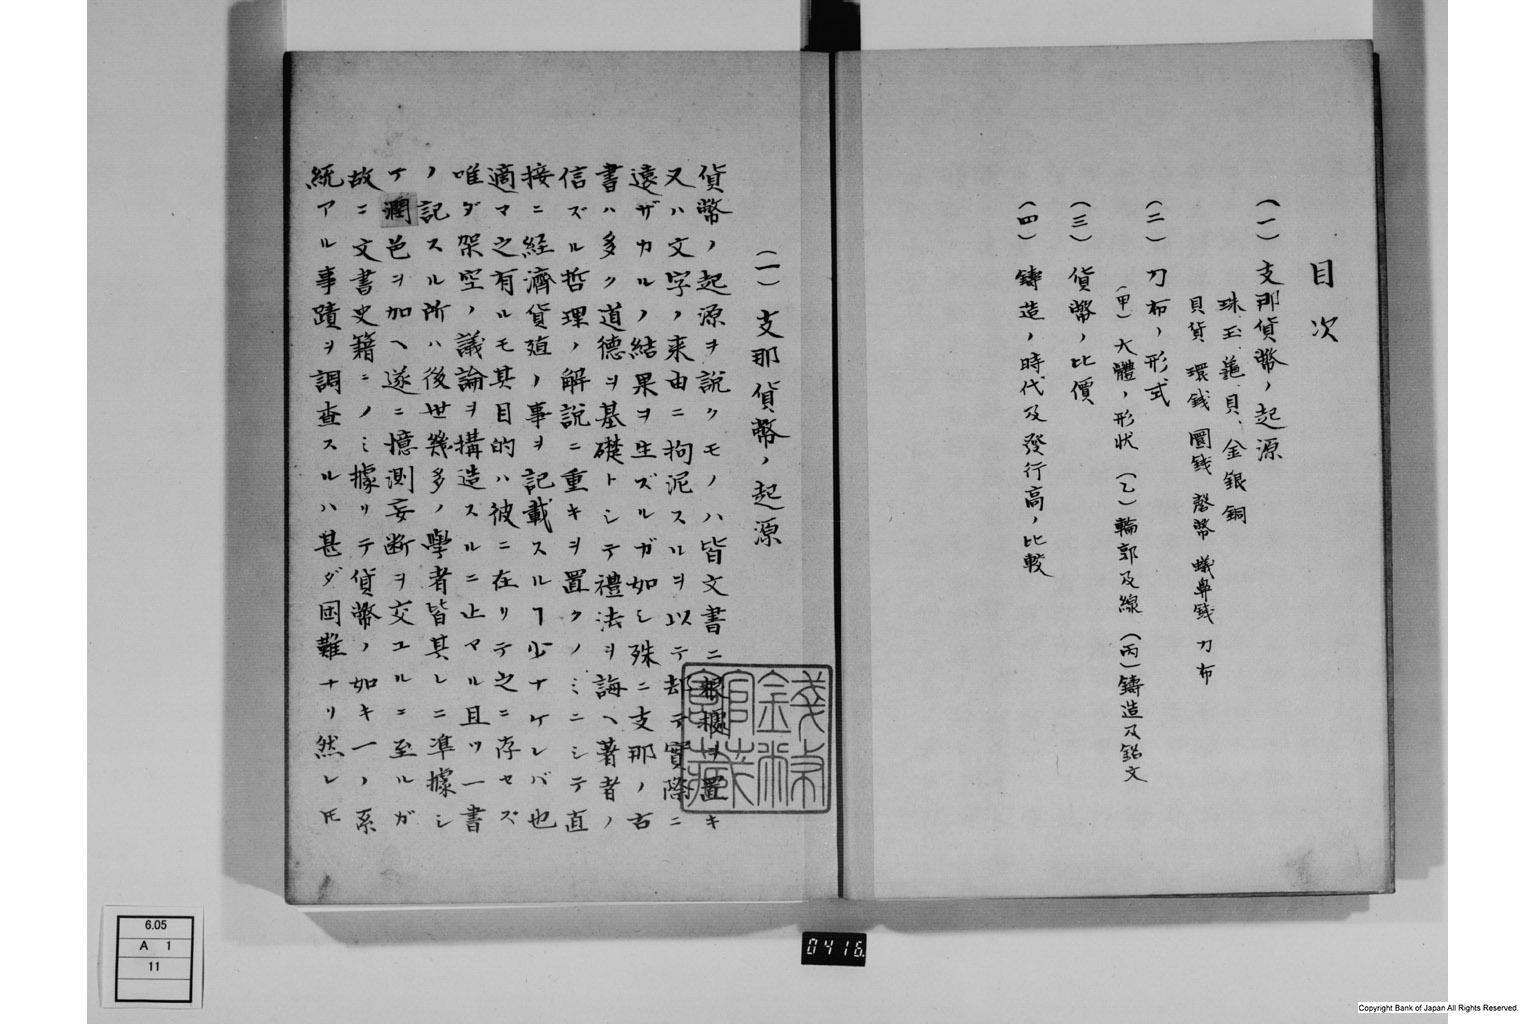 目次
(一)支那貨幣ノ起源
珠、玉、龜、貝、金銀銅
貝貨 環錢 圜錢 磬幣 蟻鼻錢 刀布
(二)刀布ノ形式
(甲)大體ノ形状 (乙)輪郭及線 (丙)鑄造及銘文
(三)貨幣ノ比價
(四)鑄造ノ時代及發行高ノ比較
(一)支那貨幣ノ起源
貨幣ノ起源ヲ說クモノハ皆文書ニ根據ヲ置キ
又ハ文字ノ来由ニ拘泥スルヲ以テ却テ實際ニ
遠ザカルノ結果ヲ生ズルガ如シ殊ニ支那ノ古
書ハ多ク道德ヲ基礎トシテ禮法ヲ誨ヘ著者ノ
信ズル哲理ノ解說ニ重キヲ置クノミニシテ直
接ニ経濟貨殖ノ事ヲ記載スルヿ少ナケレバ也
適マ之有ルモ其目的ハ彼ニ在リテ之ニ存セズ
唯ダ架空ノ議論ヲ搆造スルニ止マル且ツ一書
ノ記スル所ハ後世幾多ノ學者皆其レニ準據シ
テ潤色ヲ加ヘ遂ニ憶測妄断ヲ交ユルニ至ルガ
故ニ文書史籍ニノミ據リテ貨幣ノ如キ一ノ系
統アル事蹟ヲ調査スルハ甚ダ困難ナリ然レ𪜈
錢幣館藏
6.05
A 1
11
0416
Copyright Bank of Japan All Rights Reserved.